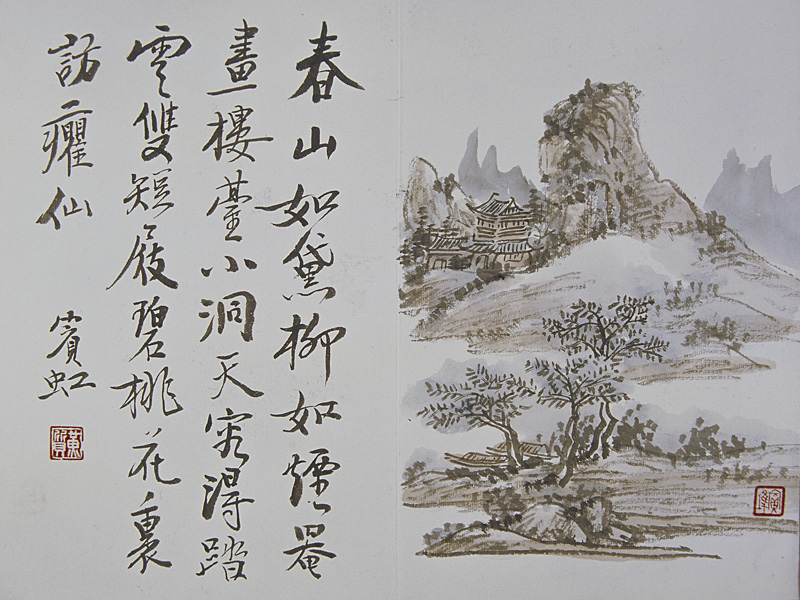 春山如黛柳如煙罨
畫樓臺小洞天容得踏
雲雙短屐碧桃花裏
訪癯仙
賓虹
黃質